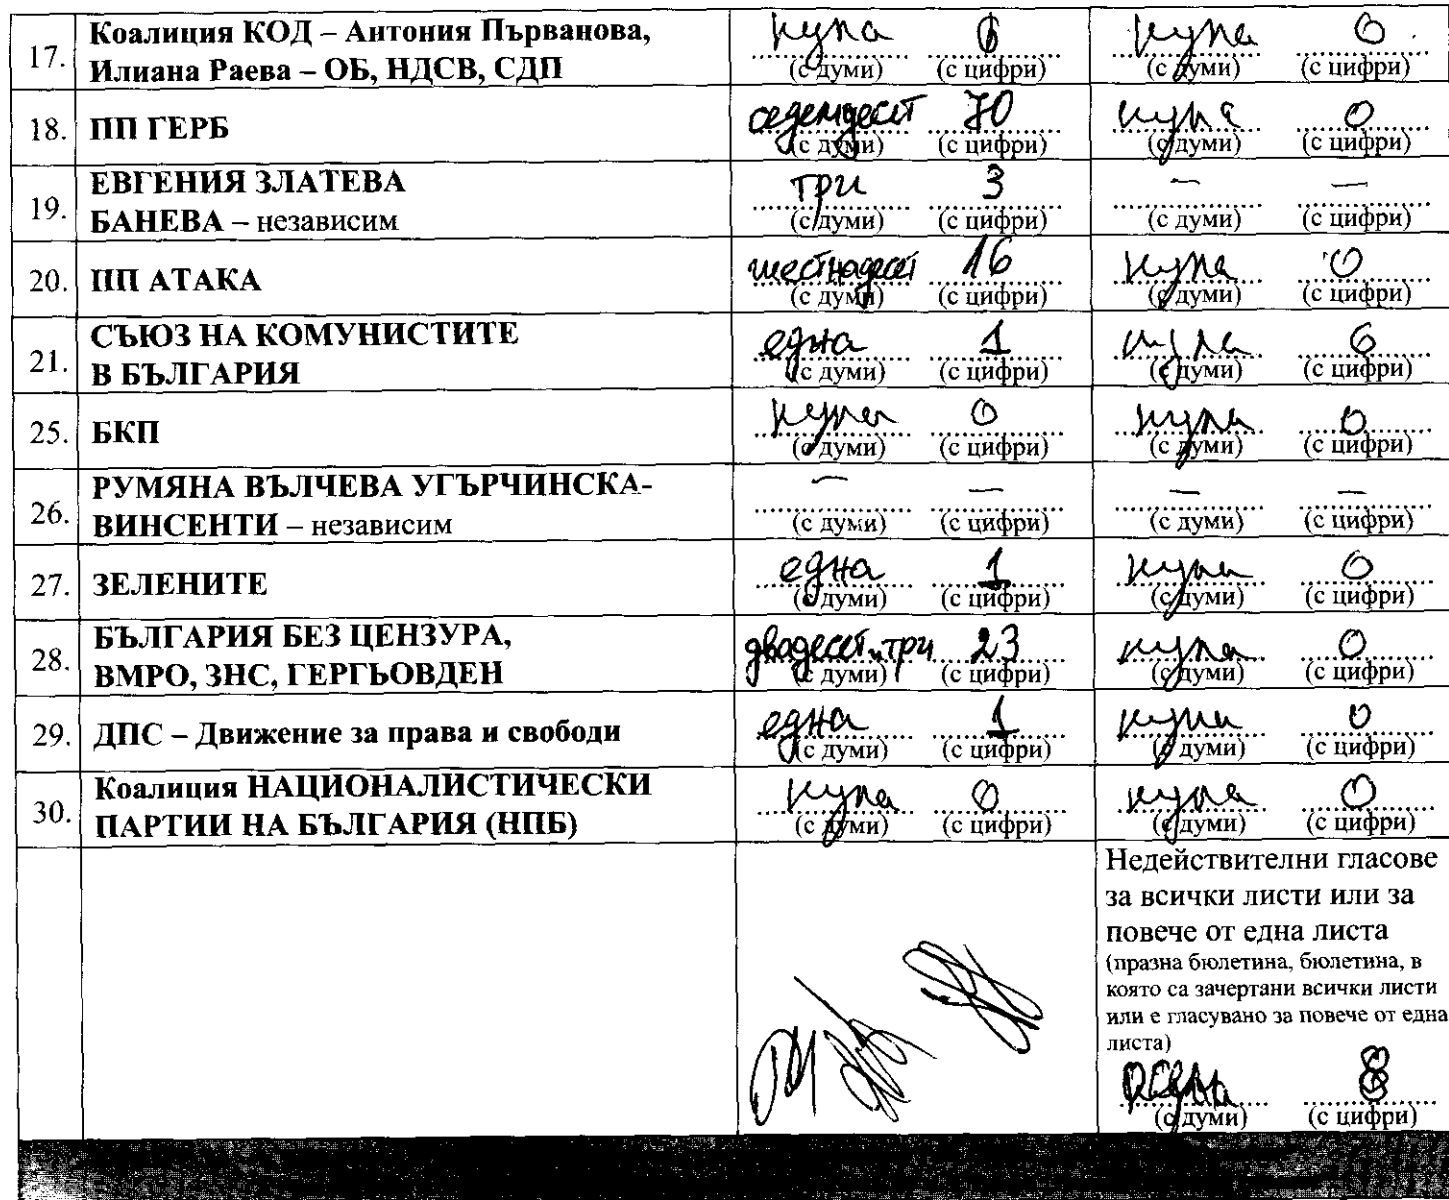 17. Коалиция КОД – Антония Първанова, Илиана Раева – ОБ, НДСВ, СДП нула 0 нула 0
(с думи) (с цифри) (с думи) (с цифри)
18. ПП ГЕРБ седемдесет 70 нула 0
(с думи) (с цифри) (с думи) (с цифри)
19. ЕВГЕНИЯ ЗЛАТЕВА
БАНЕВА – независим три 3 — —
(с думи) (с цифри) (с думи) (с цифри)
20. ПП АТАКА шестнадесет 16 нула 0
(с думи) (с цифри) (с думи) (с цифри)
21. СЪЮЗ НА КОМУНИСТИТЕ
В БЪЛГАРИЯ една 1 нула 0
(с думи) (с цифри) (с думи) (с цифри)
25. БКП нула 0 нула 0
(с думи) (с цифри) (с думи) (с цифри)
26. РУМЯНА ВЪЛЧЕВА УГЪРЧИНСКА-
ВИНСЕНТИ – независим — — — —
(с думи) (с цифри) (с думи) (с цифри)
27. ЗЕЛЕНИТЕ една 1 нула 0
(с думи) (с цифри) (с думи) (с цифри)
28. БЪЛГАРИЯ БЕЗ ЦЕНЗУРА,
ВМРО, ЗНС, ГЕРГЬОВДЕН двадесет и три 23 нула 0
(с думи) (с цифри) (с думи) (с цифри)
29. ДПС – Движение за права и свободи една 1 нула 0
(с думи) (с цифри) (с думи) (с цифри)
30. Коалиция НАЦИОНАЛИСТИЧЕСКИ
ПАРТИИ НА БЪЛГАРИЯ (НПБ) нула 0 нула 0
(с думи) (с цифри) (с думи) (с цифри)
Недействителни гласове
за всички листи или за
повече от една листа
(празна бюлетина, бюлетина, в
която са зачертани всички листи
или е гласувано за повече от една
листа)
8
(с думи) (с цифри)